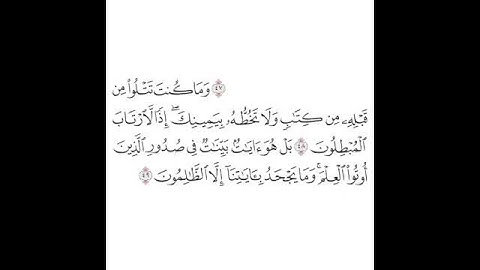 ٤٧ وَمَا كُنتَ تَتْلُوا۟ مِن
قَبْلِهِۦ مِن كِتَٰبٍ وَلَا تَخُطُّهُۥ بِيَمِينِكَ ۖ إِذًا لَّٱرْتَابَ
ٱلْمُبْطِلُونَ ٤٨ بَلْ هُوَ ءَايَٰتٌۢ بَيِّنَٰتٌ فِى صُدُورِ ٱلَّذِينَ
أُوتُوا۟ ٱلْعِلْمَ ۚ وَمَا يَجْحَدُ بِـَٔايَٰتِنَآ إِلَّا ٱلظَّٰلِمُونَ ٤٩